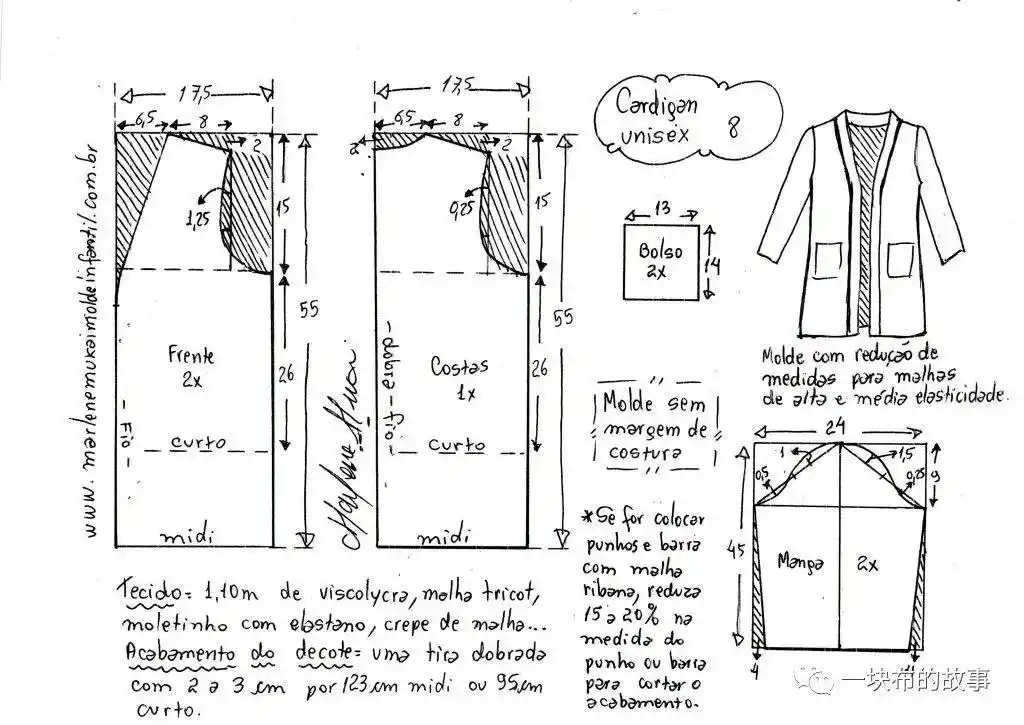 17,5
6,5
8
2
1,25
15
55
26
Frente
2x
-Fio-
curto
midi
www.marlenemukaimoldeinfantil.com.br
17,5
6,5
8
2
2
0,25
15
55
26
Costas
1x
-dobra-fio-
curto
midi
Marlene Mukai
Cardigan
unisex 8
13
Bolso
2x
14
Molde com redução de
medidas para malhas
de alta e média elasticidade.
Molde sem
margem de
costura
24
1
1,5
0,5
0,25
9
45
Manga 2x
4
4
*Se for colocar
punhos e barra
com malha
ribana, reduza
15 a 20% na
medida do
punho ou barra
para cortar o
acabamento.
Tecido= 1,10m de viscolycra, malha tricot,
moletinho com elastano, crepe de malha...
Acabamento do decote= uma tira dobrada
com 2 a 3 cm por 123cm midi ou 95cm
curto.
一块布的故事